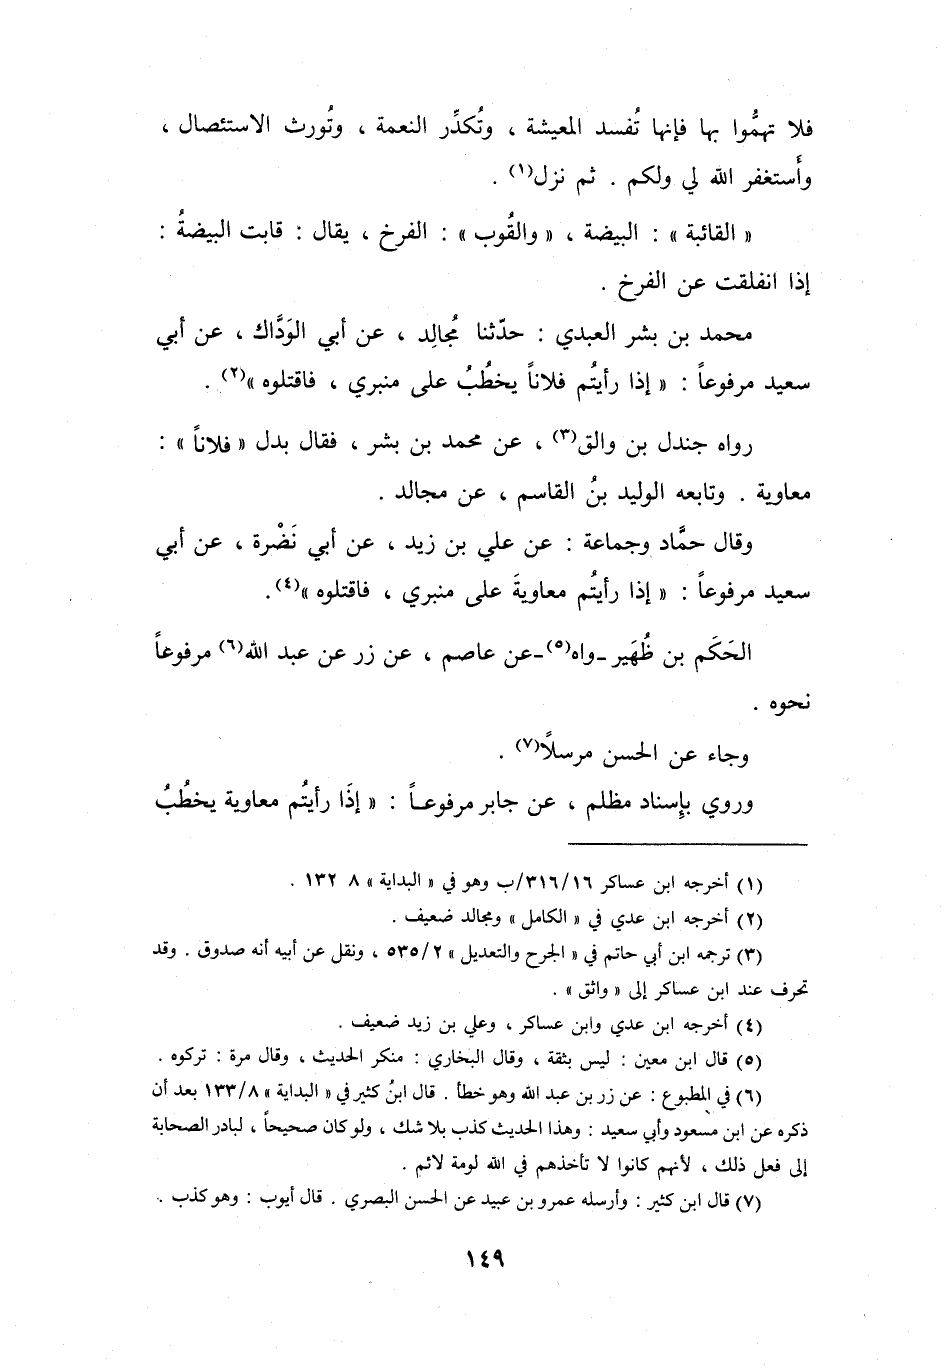 فلا تهمُّوا بها فإنها تُفسد المعيشة ، وتُكدِّر النعمة ، وتُورث الاستئصال ،
وأَستغفر الله لي ولكم . ثم نزل(١) .
« القائبة » : البيضة ، « والقُوب » : الفرخ ، يقال : قابت البيضةُ :
إذا انفلقت عن الفرخ .
محمد بن بشر العبدي : حدّثنا مُجالِد ، عن أبي الوَدَّاك ، عن أبي
سعيد مرفوعاً : « إذا رأيتُم فلاناً يخطُبُ على منبري ، فاقتلوه »(٢) .
رواه جندل بن والق(٣) ، عن محمد بن بشر ، فقال بدل « فلاناً » :
معاوية . وتابعه الوليد بنُ القاسم ، عن مجالد .
وقال حمَّاد وجماعة : عن علي بن زيد ، عن أبي نَضْرة ، عن أبي
سعيد مرفوعاً : « إذا رأيتُم معاويةَ على منبري ، فاقتلوه »(٤).
الحَكَم بن ظُهَير ـ واه(٥) ـ عن عاصم ، عن زر عن عبد الله(٦) مرفوعاً
نحوه .
وجاء عن الحسن مرسلاً(٧) .
وروي بإِسناد مظلم ، عن جابر مرفوعـاً : « إذَا رأيتُم معاوية يخطُبُ
(١) أخرجه ابن عساكر ٣١٦/١٦/ب وهو في « البداية » ٨ ١٣٢ .
(٢) أخرجه ابن عدي في « الكامل » ومجالد ضعيف .
(٣) ترجمه ابن أبي حاتم في « الجرح والتعديل » ٥٣٥/٢ ، ونقل عن أبيه أنه صدوق . وقد
تحرف عند ابن عساكر إلى « واثق » .
(٤) أخرجه ابن عدي وابن عساكر ، وعلي بن زيد ضعيف .
(٥) قال ابن معين : ليس بثقة ، وقال البخاري : منكر الحديث ، وقال مرة : تركوه .
(٦) في المطبوع : عن زر بن عبد الله وهو خطأ . قال ابنُ كثير في « البداية » ١٣٣/٨ بعد أن
ذكره عن ابن مسعود وأبي سعيد : وهذا الحديث كذب بلا شك ، ولو كان صحيحاً ، لبادر الصحابة
إلى فعل ذلك ، لأنهم كانوا لا تأخذهم في الله لومة لائم .
(٧) قال ابن كثير : وأرسله عمرو بن عبيد عن الحسن البصري . قال أيوب : وهو كذب .
١٤٩